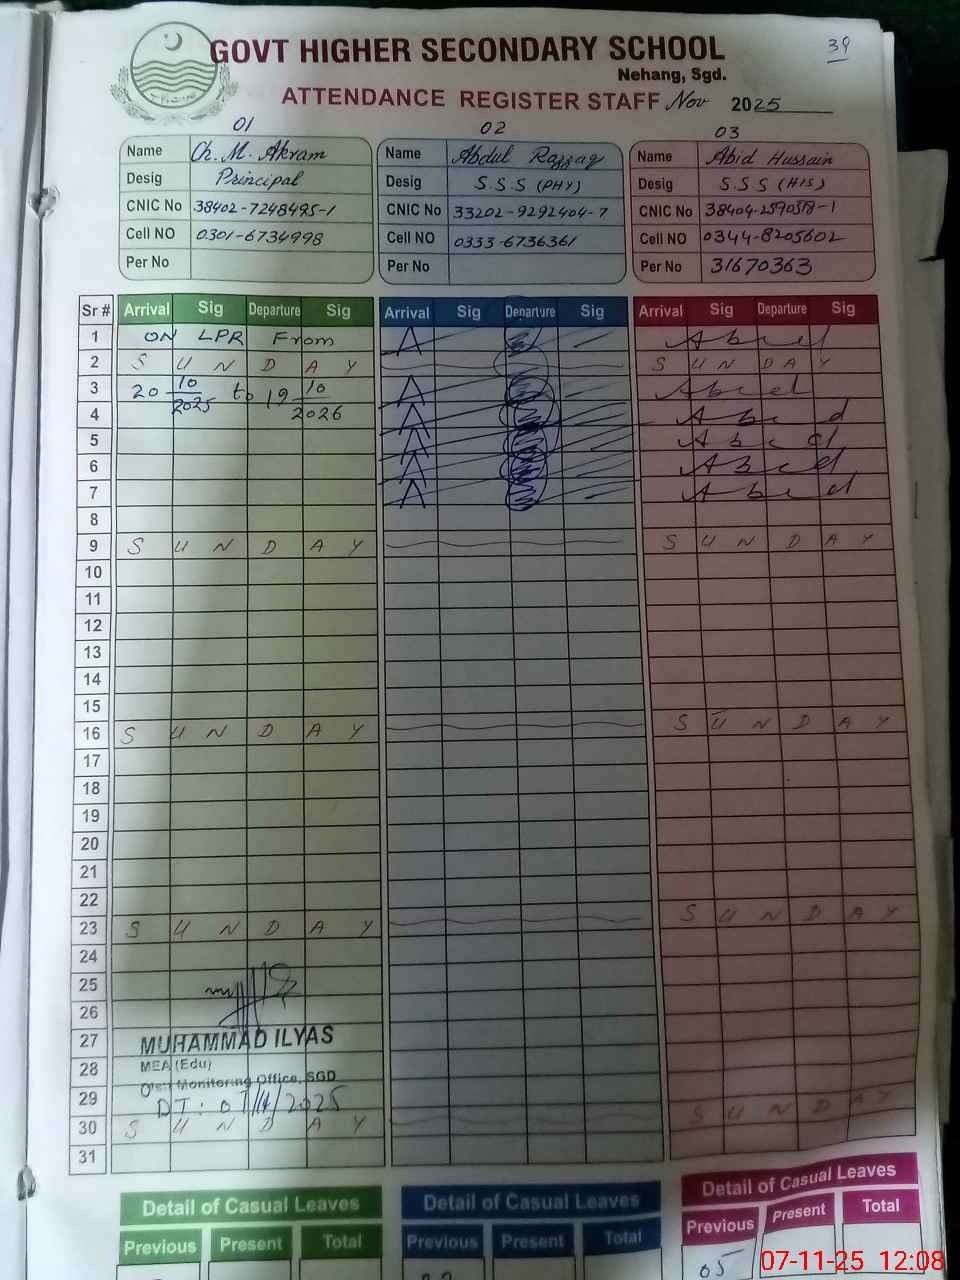 GOVT HIGHER SECONDARY SCHOOL
39
Nehang, Sgd.
ATTENDANCE REGISTER STAFF Nov 2025
01 02 03
Name Ch. M. Akram Name Abdul Razzaq Name Abid Hussain
Desig Principal Desig S.S.S (PHY) Desig S.S.S (HIS)
CNIC No 38402-7248495-1 CNIC No 33202-9292404-7 CNIC No 38404-2590518-1
Cell NO 0301-6734998 Cell NO 0333-6736361 Cell NO 0344-8205602
Per No Per No Per No 31670363
Sr # Arrival Sig Departure Sig Arrival Sig Departure Sig Arrival Sig Departure Sig
1 ON LPR From A Abid
2 SUNDAY SUNDAY
3 20 10/2025 to 19 10/2026 A Abid
4 A Abid
5 A Abid
6 A Abid
7 A Abid
8
9 SUNDAY SUNDAY
10
11
12
13
14
15
16 SUNDAY SUNDAY
17
18
19
20
21
22
23 SUNDAY SUNDAY
24
25
26
27 MUHAMMAD ILYAS
28 MEA (Edu)
Distt Monitoring Office, SGD
29 DT: 07/11/2025
30 SUNDAY SUNDAY
31
Detail of Casual Leaves Detail of Casual Leaves Detail of Casual Leaves
Previous Present Total Previous Present Total Previous Present Total
05
07-11-25 12:08